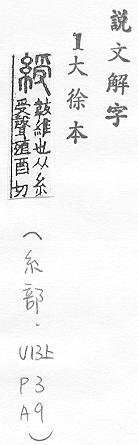 説文解字
1大徐本
綬 韍維也从糸
受聲殖酉切
(糸部·
U13上
P3
A9)